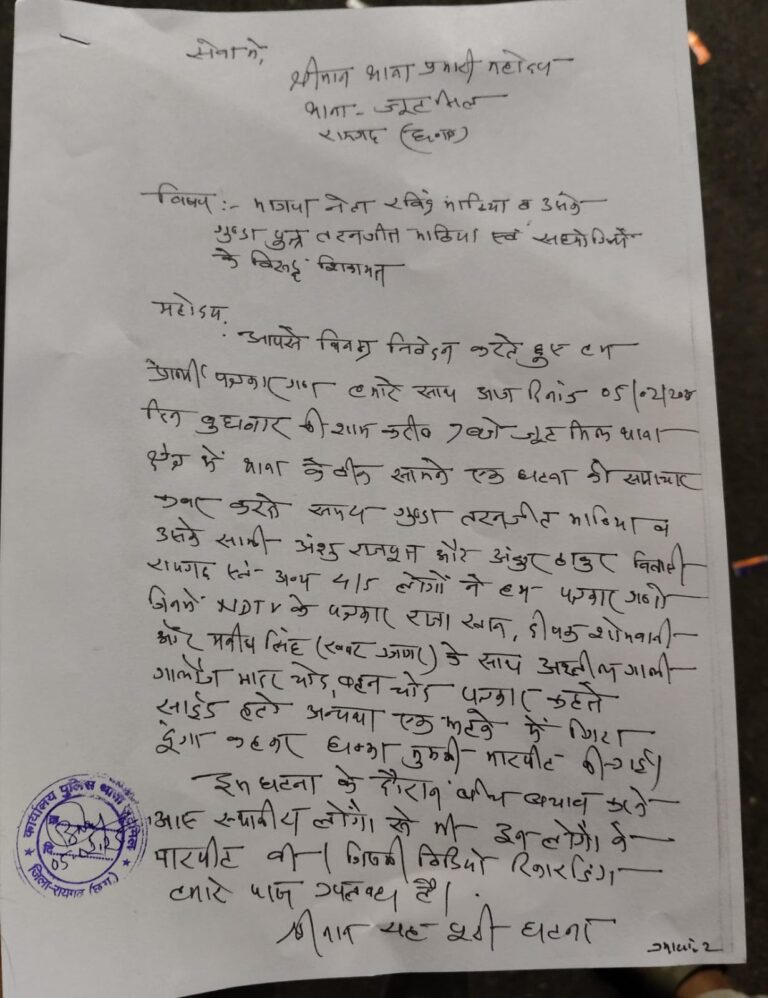 सेवा में,
श्रीमान थाना प्रभारी महोदय
थाना - जूटमिल
रायगढ़ (छ.ग.)
विषय :- भाजपा नेता रविन्द्र भाटिया व उसके
गुण्डा पुत्र तरनजीत भाटिया एवं सहयोगियों
के विरूद्ध शिकायत
महोदय,
आपसे विनम्र निवेदन करते हुए हम
पत्रकारगण हमारे साथ आज दिनांक 05/02/
दिन बुधवार की शाम करीब 7 बजे जूट मिल थाना
क्षेत्र में थाना के ठीक सामने एक घटना की समाचार
कवर करते समय गुण्डा तरनजीत भाटिया व
उसके साथी अंशु राजपूत और अंकुर ठाकुर निवासी
रायगढ़ एवं अन्य 4/5 लोगों ने हम पत्रकार गणों
जिनमें NDTV के पत्रकार राजा खान, दीपक शोभवानी
और मनीष सिंह (खबर उजागर) के साथ अश्लील गाली
गालौज मादर चोद, बहन चोद पत्रकार कहते
साईड हटो अन्यथा एक झटके में गिरा
दूंगा कहकर धक्का मुक्की मारपीट की गई।
इस घटना के दौरान बीच बचाव करने
आए स्थानीय लोगों से भी इन लोगों ने
मारपीट की। जिसकी विडियो रिकार्डिंग
हमारे पास उपलब्ध है।
श्रीमान यह पूरी घटना
2
कार्यालय पुलिस थाना जूटमिल
जिला-रायगढ़ (छ.ग.)